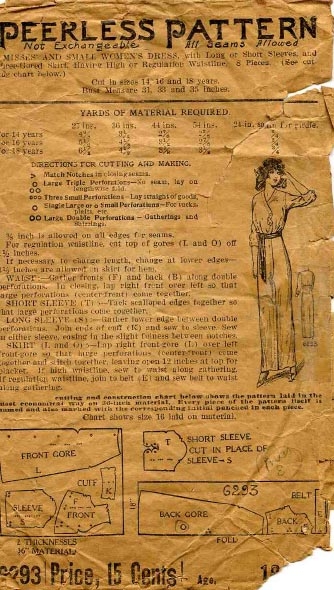 PEERLESS PATTERN
Not Exchangeable All Seams Allowed
MISSES' AND SMALL WOMEN'S DRESS, with Long or Short Sleeves, and
Skirt, Having High or Regulation Waistline. 8 Pieces. (See cut
chart below.)
Cut in sizes 14, 16 and 18 years.
Bust Measure 31, 33 and 35 Inches.
YARDS OF MATERIAL REQUIRED
27 ins. 36 ins. 44 ins. 54 ins. 24-in. for girdle.
for 14 years
for 16 years
for 18 years
DIRECTIONS FOR CUTTING AND MAKING.
Match Notches in closing seams.
Large Triple Perforations—No seam, lay on
lengthwise fold.
Three Small Perforations—Lay straight of goods.
Single Large or Small Perforations—For tucks
plaits, etc.
Large Double Perforations — Gatherings and
Shirrings.
⅜ inch is allowed on all edges for seams.
For regulation waistline, cut top of gores (L and O) off
½ inches.
If necessary to change length, change at lower edges—
½ inches are allowed on skirt for hem.
WAIST—Gather fronts (F) and back (B) along double
perforations. In closing, lap right front over left so that
large perforations (center-front) come together.
SHORT SLEEVE (T)—Tack scalloped edge together so
that large perforations come together.
LONG SLEEVE (S)—Gather lower edge between double
perforations. Join ends of cuff (K) and sew to sleeve. Sew
in either sleeve, easing in the slight fulness between notches.
SKIRT (L and O)—Lap right front-gore (L) over left
front-gore so that large perforations (center-front) come
together and stitch together, leaving open 12 inches at top for
placket. If high waistline, sew to waist along gathering.
If regulation waistline, join to belt (E) and sew belt to waist
along gathering.
cutting and construction chart below shows the pattern laid in the
most economical way on 36-inch material. Every piece of the pattern itself is
named and also marked with the corresponding initial punched in each piece.
Chart shows size 16 laid on material.
FRONT GORE
L
CUFF
K
SLEEVE
S
F
FRONT
2 THICKNESSES
36" MATERIAL
T
SHORT SLEEVE
CUT IN PLACE OF
SLEEVE-S
6293
BELT
E
18"
BACK GORE
O
BACK
B
FOLD
6293 Price, 15 Cents! Age,